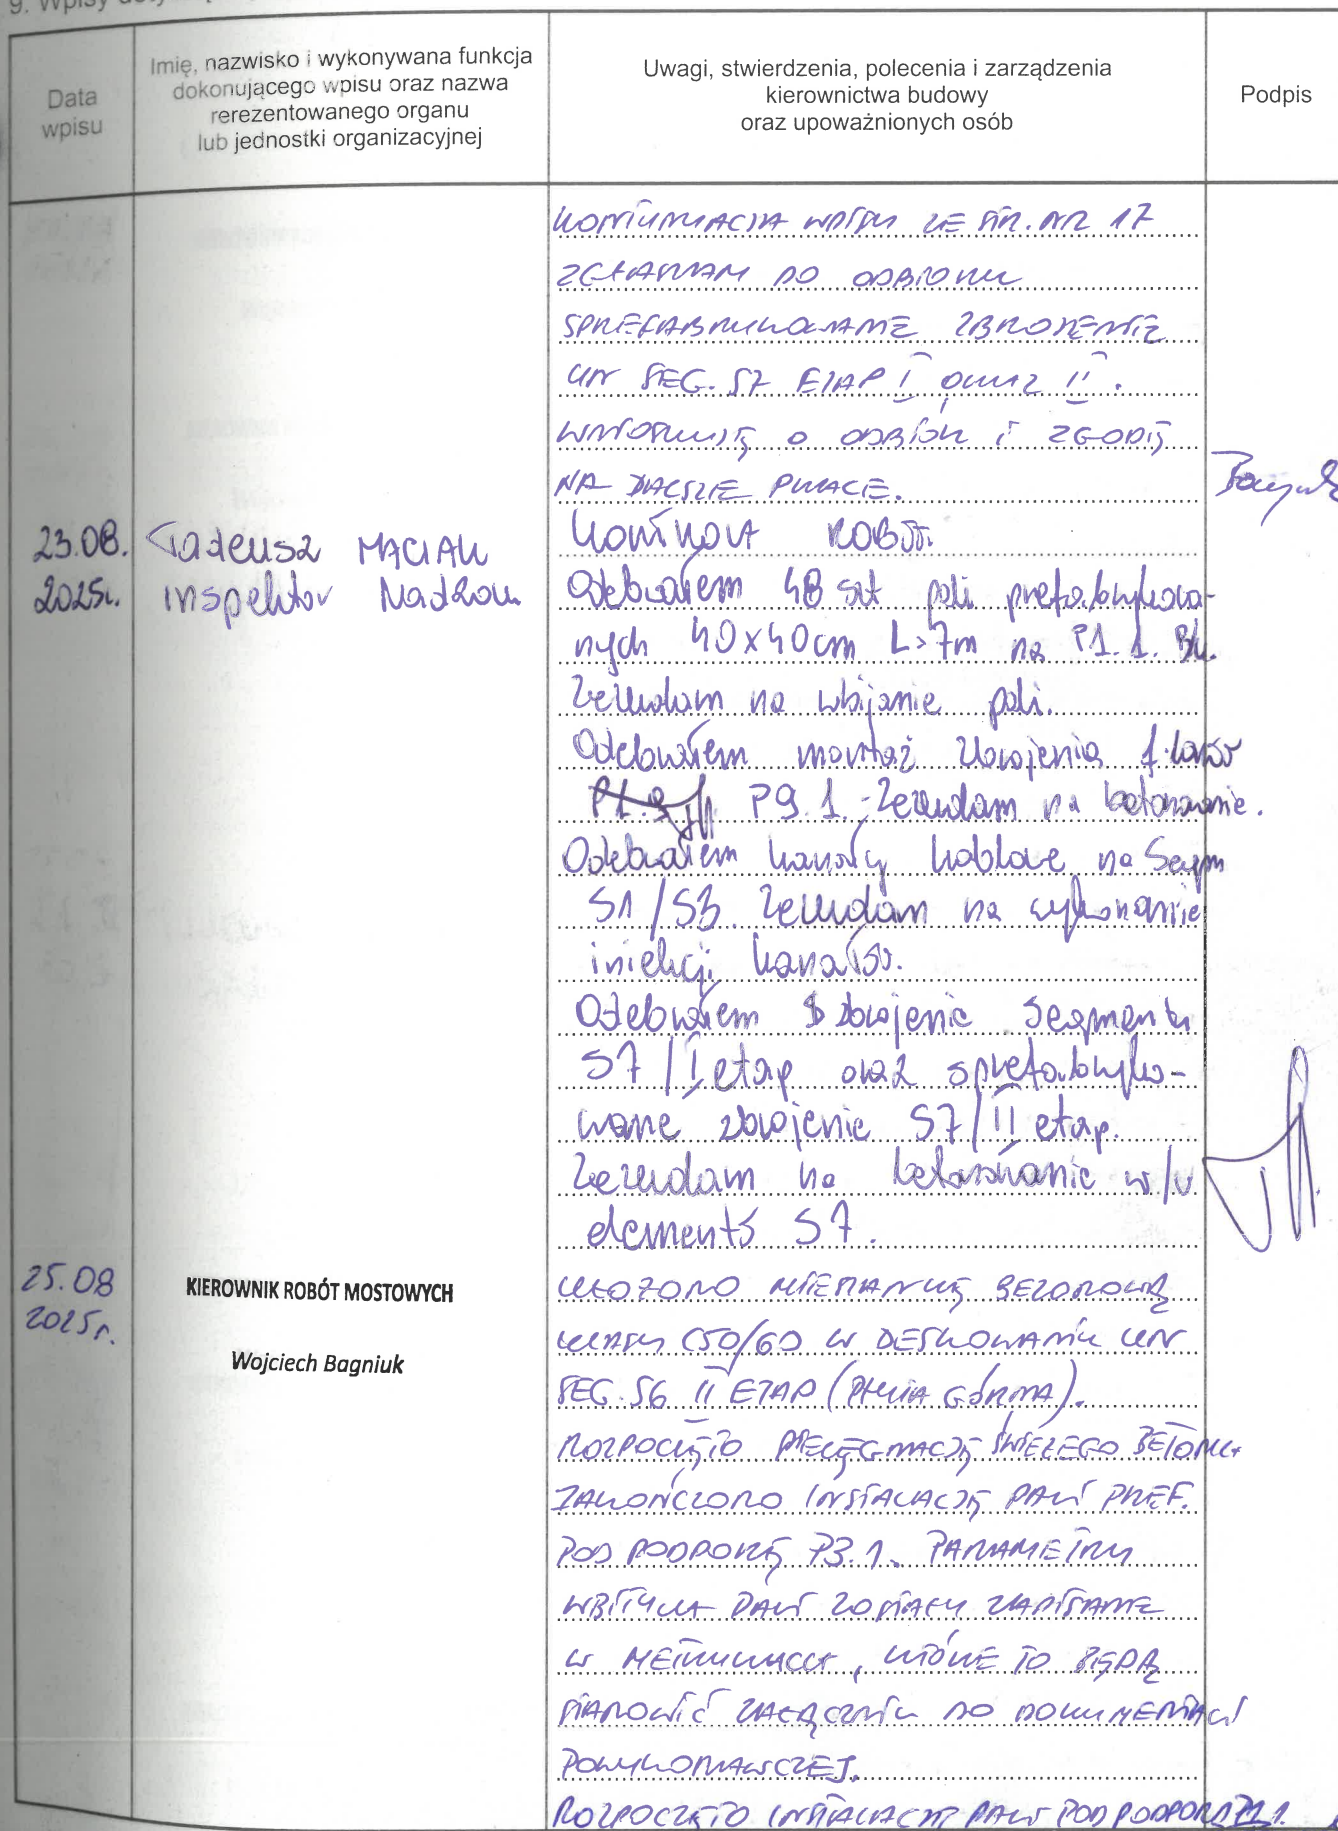 9. Wpisy
Data
wpisu
Imię, nazwisko i wykonywana funkcja
dokonującego wpisu oraz nazwa
rerezentowanego organu
lub jednostki organizacyjnej
Uwagi, stwierdzenia, polecenia i zarządzenia
kierownictwa budowy
oraz upoważnionych osób
Podpis
KONTYNUACJA WPISU ZE STR. NR 17
ZGŁASZAM DO ODBIORU
SPREFABRYKOWANE ZBROJENIE
UN SEG. S7 ETAP I ORAZ II.
WNIOSKUJĘ O ODBIÓR I ZGODĘ
NA DALSZE PRACE.
23.08.
2025r.
Tadeusz MACIAK
Inspektor Nadzoru
Kontrola ROBÓT.
Odebrałem 48 szt pali prefabrykowa-
nych 40x40cm L=7m na P1.1.
Zezwalam na wbijanie pali.
Odebrałem montaż zbrojenia filarów
P9.1. Zezwalam na betonowanie.
Odebrałem kanały kablowe na Segm
S1/S3. Zezwalam na wykonanie
iniekcji kanałów.
Odebrałem zbrojenie Segmentu
S7/I etap oraz sprefabryko-
wane zbrojenie S7/II etap.
Zezwalam na betonowanie w/w
elementów S7.
25.08
2025r.
KIEROWNIK ROBÓT MOSTOWYCH
Wojciech Bagniuk
UŁOŻONO MIESZANKĘ BETONOWĄ
KLASY C50/60 W DESKOWANIU UN
SEG. S6 II ETAP (PŁYTA GÓRNA).
ROZPOCZĘTO PIELĘGNACJĘ ŚWIEŻEGO BETONU.
ZAKOŃCZONO INSTALACJĘ PALI PREF.
POD PODPORĘ P3.1. PARAMETRY
WBITYCH PALI ZOSTAŁY ZAPISANE
W METRYKACH, KTÓRE TO BĘDĄ
STANOWIĆ ZAŁĄCZNIK DO DOKUMENTACJI
POWYKONAWCZEJ.
ROZPOCZĘTO INSTALACJĘ PALI POD PODPORĘ